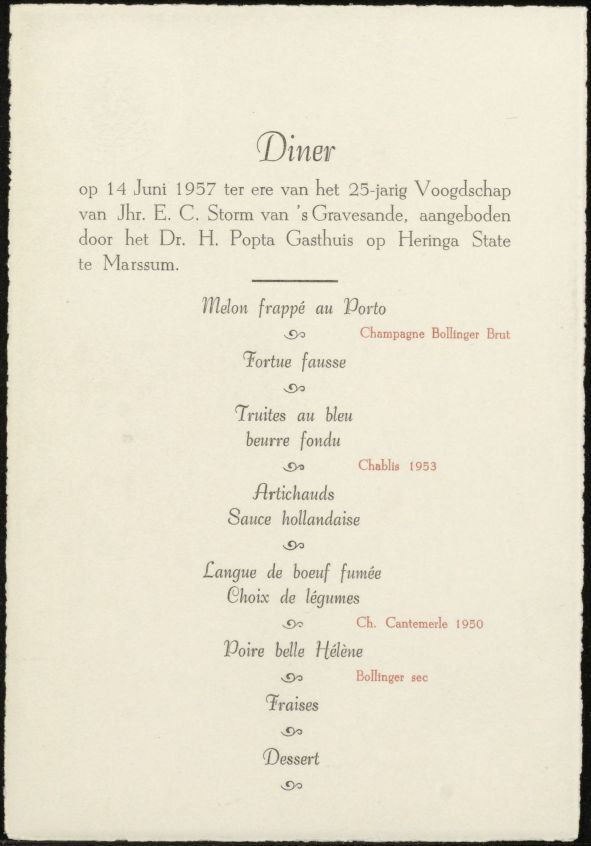 Diner
op 14 Juni 1957 ter ere van het 25-jarig Voogdschap
van Jhr. E. C. Storm van 's Gravesande, aangeboden
door het Dr. H. Popta Gasthuis op Heringa State
te Marssum.
Melon frappé au Porto
Champagne Bollinger Brut
Tortue fausse
Truites au bleu
beurre fondu
Chablis 1953
Artichauds
Sauce hollandaise
Langue de boeuf fumée
Choix de légumes
Ch. Cantemerle 1950
Poire belle Hélène
Bollinger sec
Fraises
Dessert